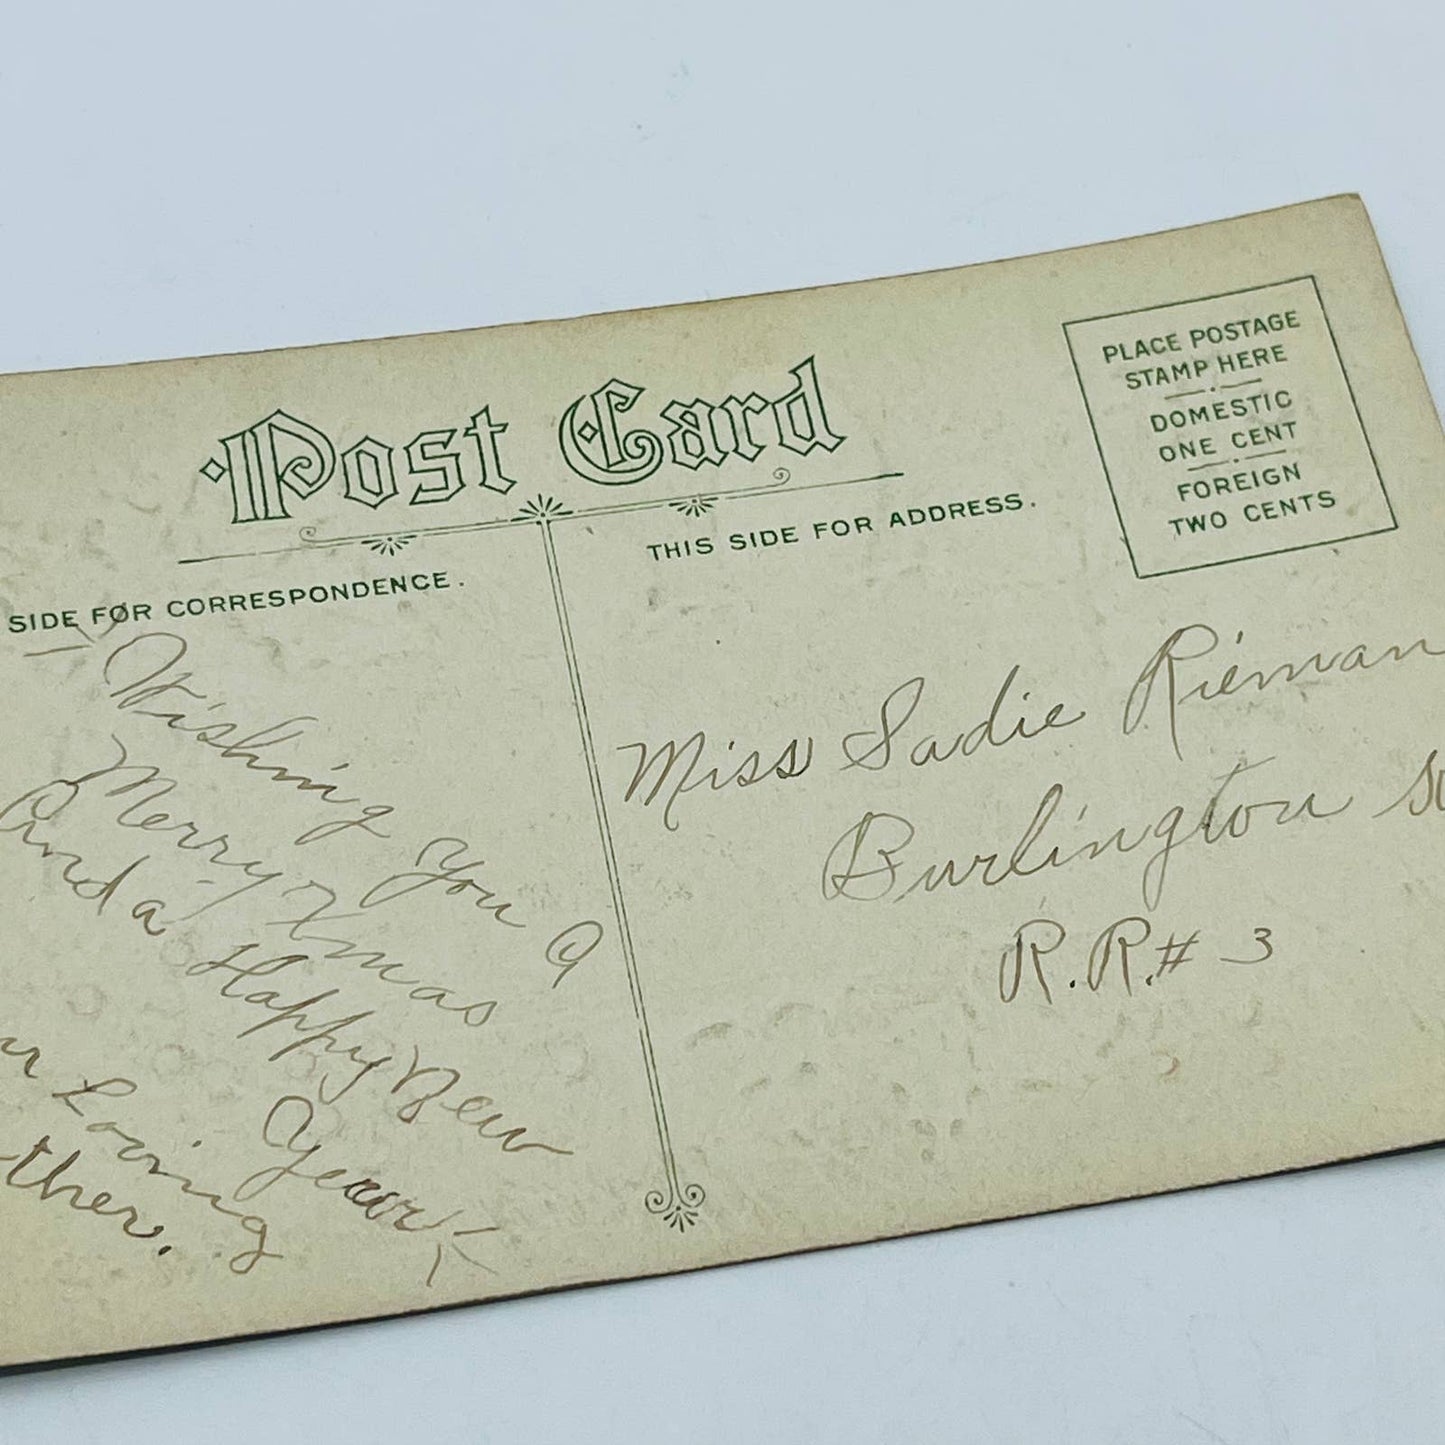 Post Card
SIDE FOR CORRESPONDENCE.
THIS SIDE FOR ADDRESS.
PLACE POSTAGE
STAMP HERE
DOMESTIC
ONE CENT
FOREIGN
TWO CENTS
Wishing you a
Merry Xmas
And a Happy New
Year
Loving
Miss Sadie Rieman
Burlington
R.R.# 3